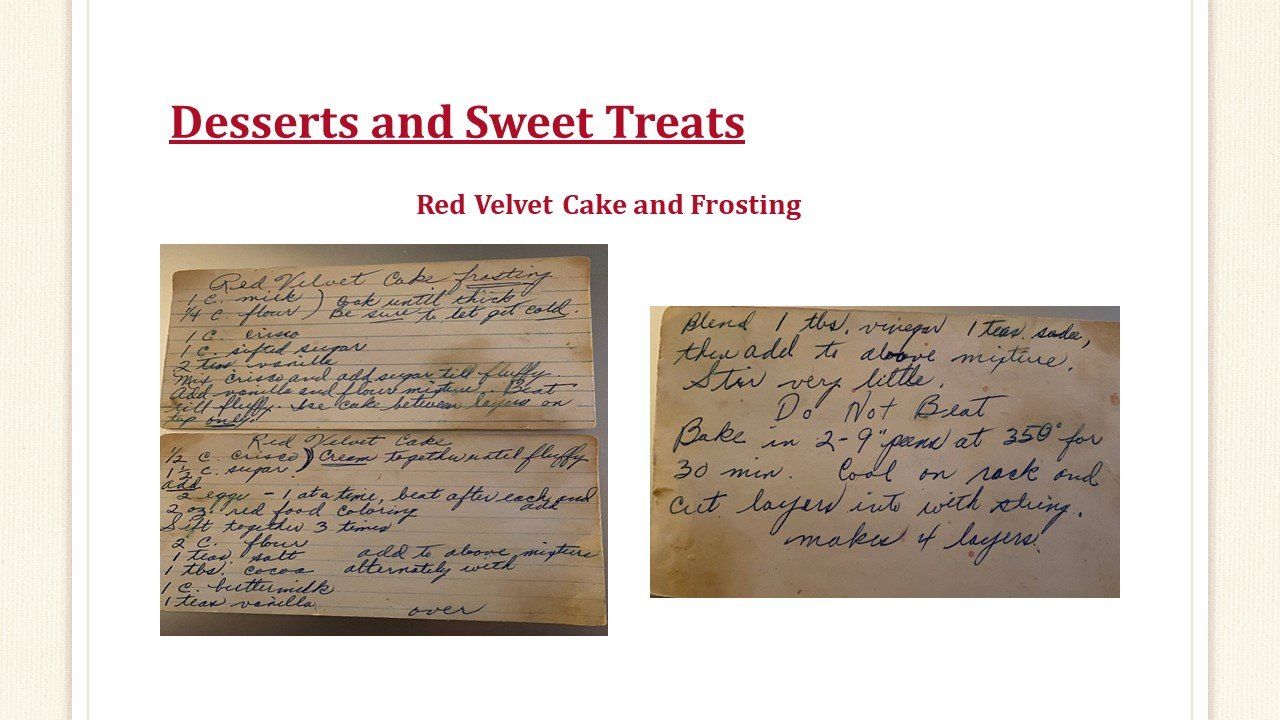 Desserts and Sweet Treats
Red Velvet Cake and Frosting
Red Velvet Cake frosting
1 C. milk ) Cook until thick
1/4 c. flour ) Be sure to let get cold.
1 C. crisco
1 C. sifted sugar
2 teas vanilla
Mix crisco and add sugar till fluffy
Add vanilla and flour mixture. Beat
till fluffy. Ice cake between layers on
top only.
Red Velvet Cake
1/2 c. crisco ) Cream together until fluffy
1 1/2 c. sugar )
add
2 eggs - 1 at a time, beat after each and
2 oz. red food coloring add
Sift together 3 times
2 C. flour
1 teas. salt add to above mixture
1 tbs. cocoa alternately with
1 c. buttermilk
1 teas vanilla
over
Blend 1 tbs. vinegar 1 teas. soda,
then add to above mixture.
Stir very little.
Do Not Beat
Bake in 2-9" pans at 350° for
30 min. Cool on rack and
cut layers into with string.
makes 4 layers.